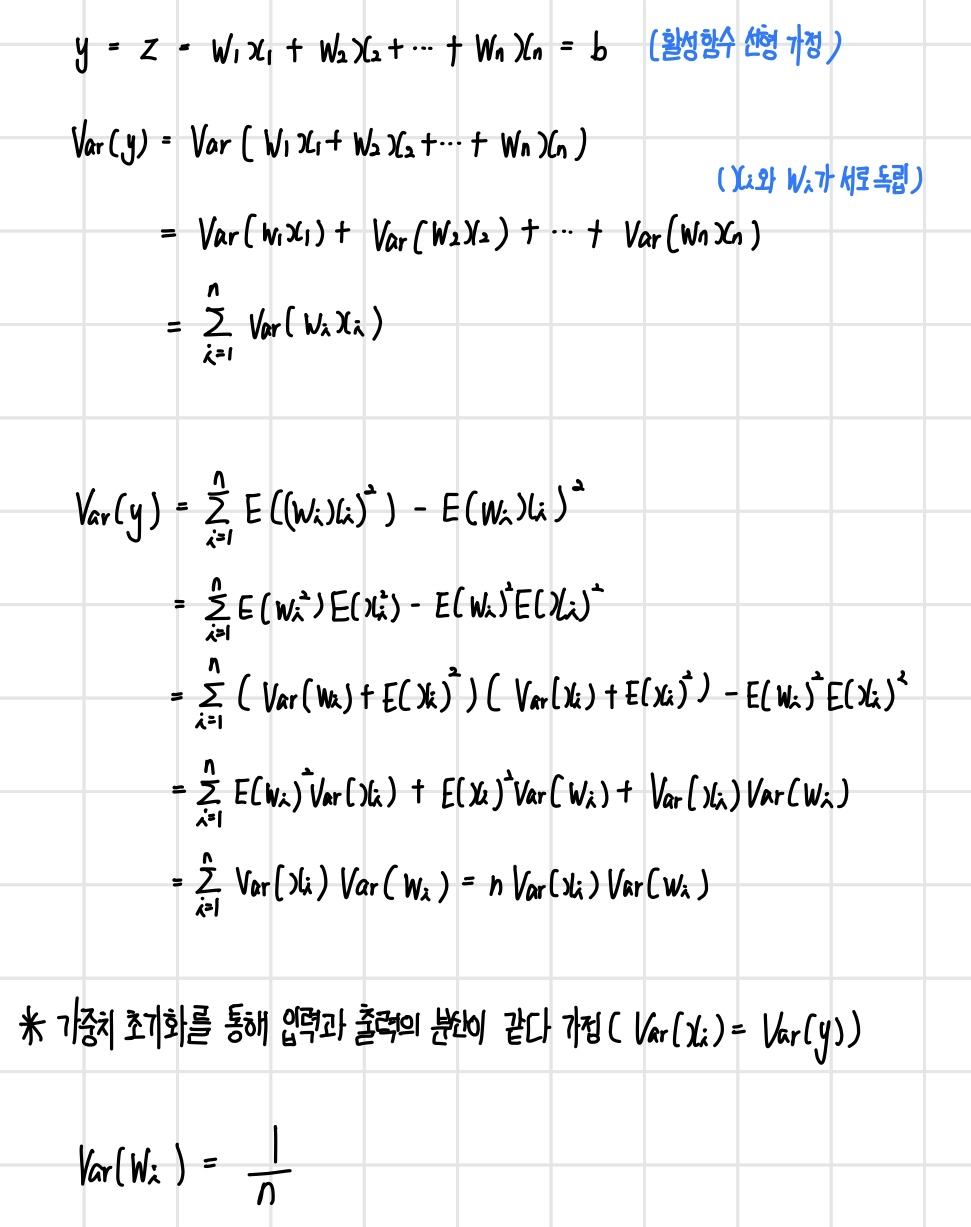 y = z = w₁x₁ + w₂x₂ + ⋯ + wₙxₙ = b (활성함수 선형 가정)
Var(y) = Var(w₁x₁ + w₂x₂ + ⋯ + wₙxₙ)
(xᵢ와 wᵢ가 서로 독립)
= Var(w₁x₁) + Var(w₂x₂) + ⋯ + Var(wₙxₙ)
= ∑ᵢ₌₁ⁿ Var(wᵢxᵢ)
Var(y) = ∑ᵢ₌₁ⁿ E((wᵢxᵢ)²) - E(wᵢxᵢ)²
= ∑ᵢ₌₁ⁿ E(wᵢ²)E(xᵢ²) - E(wᵢ)²E(xᵢ)²
= ∑ᵢ₌₁ⁿ (Var(wᵢ) + E(xᵢ)²)(Var(xᵢ) + E(xᵢ)²) - E(wᵢ)²E(xᵢ)²
= ∑ᵢ₌₁ⁿ E(wᵢ)²Var(xᵢ) + E(xᵢ)²Var(wᵢ) + Var(xᵢ)Var(wᵢ)
= ∑ᵢ₌₁ⁿ Var(xᵢ)Var(wᵢ) = nVar(xᵢ)Var(wᵢ)
* 가중치 초기화를 통해 입력과 출력의 분산이 같다 가정 (Var(xᵢ) = Var(y))
Var(wᵢ) = 1/n